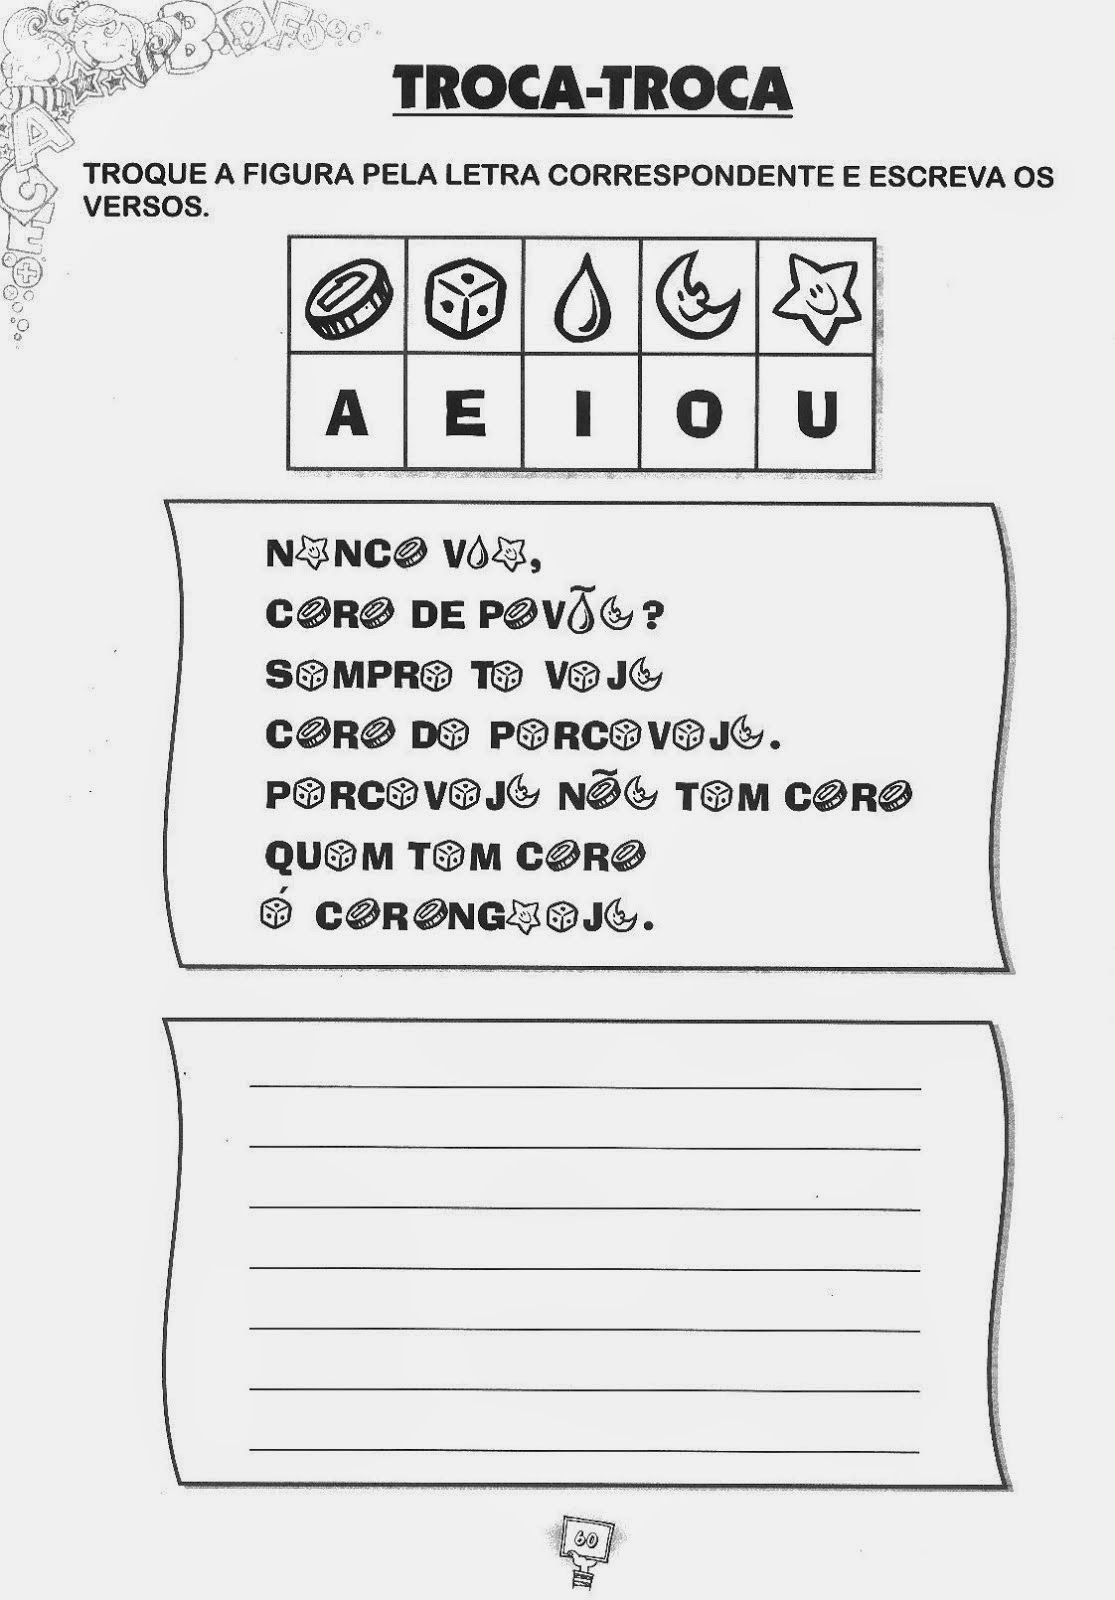 TROCA-TROCA
TROQUE A FIGURA PELA LETRA CORRESPONDENTE E ESCREVA OS
VERSOS.
A E I O U
N⭐NC🪙 V💧⭐,
C🪙R🪙 DE P🪙V💧̃🌙?
S🎲MPR🎲 T🎲 V🎲J🌙
C🪙R🪙 D🎲 P🎲RC🎲V🎲J🌙.
P🎲RC🎲V🎲J🌙 N🪙̃🌙 T🎲M C🪙R🪙
QU🎲M T🎲M C🪙R🪙
🎲́ C🪙R🪙NG⭐🎲J🌙.
60